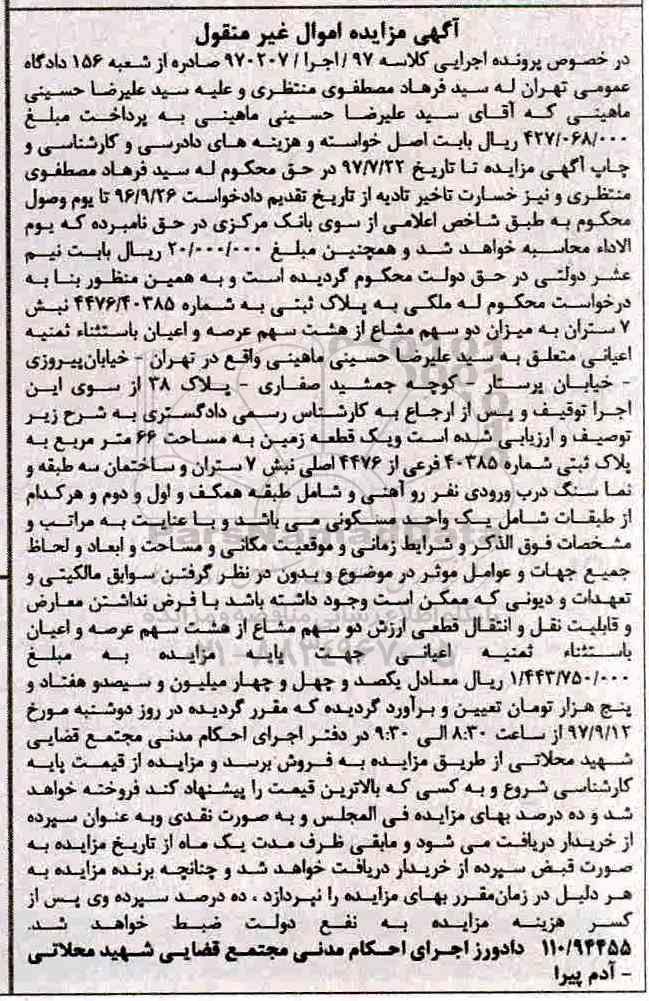 آگهی مزایده اموال غیر منقول
در خصوص پرونده اجرایی کلاسه ۹۷ /اجرا / ۹۷۰۲۰۷ صادره از شعبه ۱۵۶ دادگاه
عمومی تهران له سید فرهاد مصطفوی منتظری و علیه سید علیرضا حسینی
ماهینی که آقای سید علیرضا حسینی ماهینی به پرداخت مبلغ
۴۲۷/۰۶۸/۰۰۰ ریال بابت اصل خواسته و هزینه های دادرسی و کارشناسی و
چاپ آگهی مزایده تا تاریخ ۹۷/۷/۲۲ در حق محکوم له سید فرهاد مصطفوی
منتظری و نیز خسارت تاخیر تادیه از تاریخ تقدیم دادخواست ۹۶/۹/۲۶ تا یوم وصول
محکوم به طبق شاخص اعلامی از سوی بانک مرکزی در حق نامبرده که یوم
الاداء محاسبه خواهد شد و همچنین مبلغ ۲۰/۰۰۰/۰۰۰ ریال بابت نیم
عشر دولتی در حق دولت محکوم گردیده است و به همین منظور بنا به
درخواست محکوم له ملکی به پلاک ثبتی به شماره ۴۴۷۶/۴۰۳۸۵ نبش
۷ ستران به میزان دو سهم مشاع از هشت سهم عرصه و اعیان باستثناء ثمنیه
اعیانی متعلق به سید علیرضا حسینی ماهینی واقع در تهران - خیابان‌پیروزی
- خیابان پرستار - کوچه جمشید صفاری - پلاک ۳۸ از سوی این
اجرا توقیف و پس از ارجاع به کارشناس رسمی دادگستری به شرح زیر
توصیف و ارزیابی شده است ویک قطعه زمین به مساحت ۶۶ متر مربع به
پلاک ثبتی شماره ۴۰۳۸۵ فرعی از ۴۴۷۶ اصلی نبش ۷ ستران و ساختمان سه طبقه و
نما سنگ درب ورودی نفر رو آهنی و شامل طبقه همکف و اول و دوم و هرکدام
از طبقات شامل یک واحد مسکونی می باشد و با عنایت به مراتب و
مشخصات فوق الذکر و شرایط زمانی و موقعیت مکانی و مساحت و ابعاد و لحاظ
جمیع جهات و عوامل موثر در موضوع و بدون در نظر گرفتن سوابق مالکیتی و
تعهدات و دیونی که ممکن است وجود داشته باشد با فرض نداشتن معارض
و قابلیت نقل و انتقال قطعی ارزش دو سهم مشاع از هشت سهم عرصه و اعیان
باستثناء ثمنیه اعیانی جهت پایه مزایده به مبلغ
۱/۴۴۳/۷۵۰/۰۰۰ ریال معادل یکصد و چهل و چهار میلیون و سیصدو هفتاد و
پنج هزار تومان تعیین و برآورد گردیده که مقرر گردیده در روز دوشنبه مورخ
۹۷/۹/۱۲ از ساعت ۸:۳۰ الی ۹:۳۰ در دفتر اجرای احکام مدنی مجتمع قضایی
شهید محلاتی از طریق مزایده به فروش برسد و مزایده از قیمت پایه
کارشناسی شروع و به کسی که بالاترین قیمت را پیشنهاد کند فروخته خواهد
شد و ده درصد بهای مزایده فی المجلس و به صورت نقدی وبه عنوان سپرده
از خریدار دریافت می شود و مابقی ظرف مدت یک ماه از تاریخ مزایده به
صورت قبض سپرده از خریدار دریافت خواهد شد و چنانچه برنده مزایده به
هر دلیل در زمان‌مقرر بهای مزایده را نپردازد ، ده درصد سپرده وی پس از
کسر هزینه مزایده به نفع دولت ضبط خواهد شد.
۱۱۰/۹۴۴۵۵ دادورز اجرای احکام مدنی مجتمع قضایی شهید محلاتی
- آدم پیرا